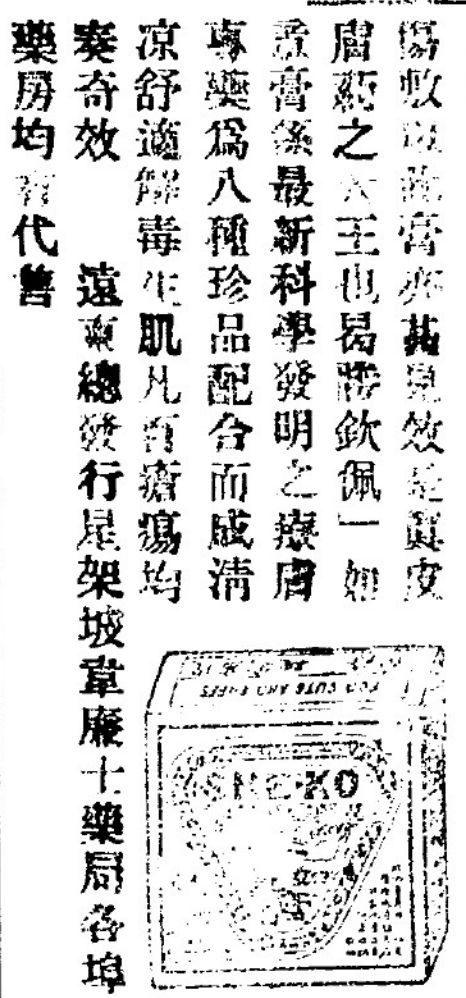 傷敷以此膏亦甚見效是眞皮
膚藥之大王也曷勝欽佩」如
意膏係最新科學發明之療膚
專藥爲八種珍品配合而成清
凉舒適解毒生肌凡百瘡瘍均
奏奇效　遠東總發行星架坡韋廉士藥局各埠
藥房均有代售
SHE·KO